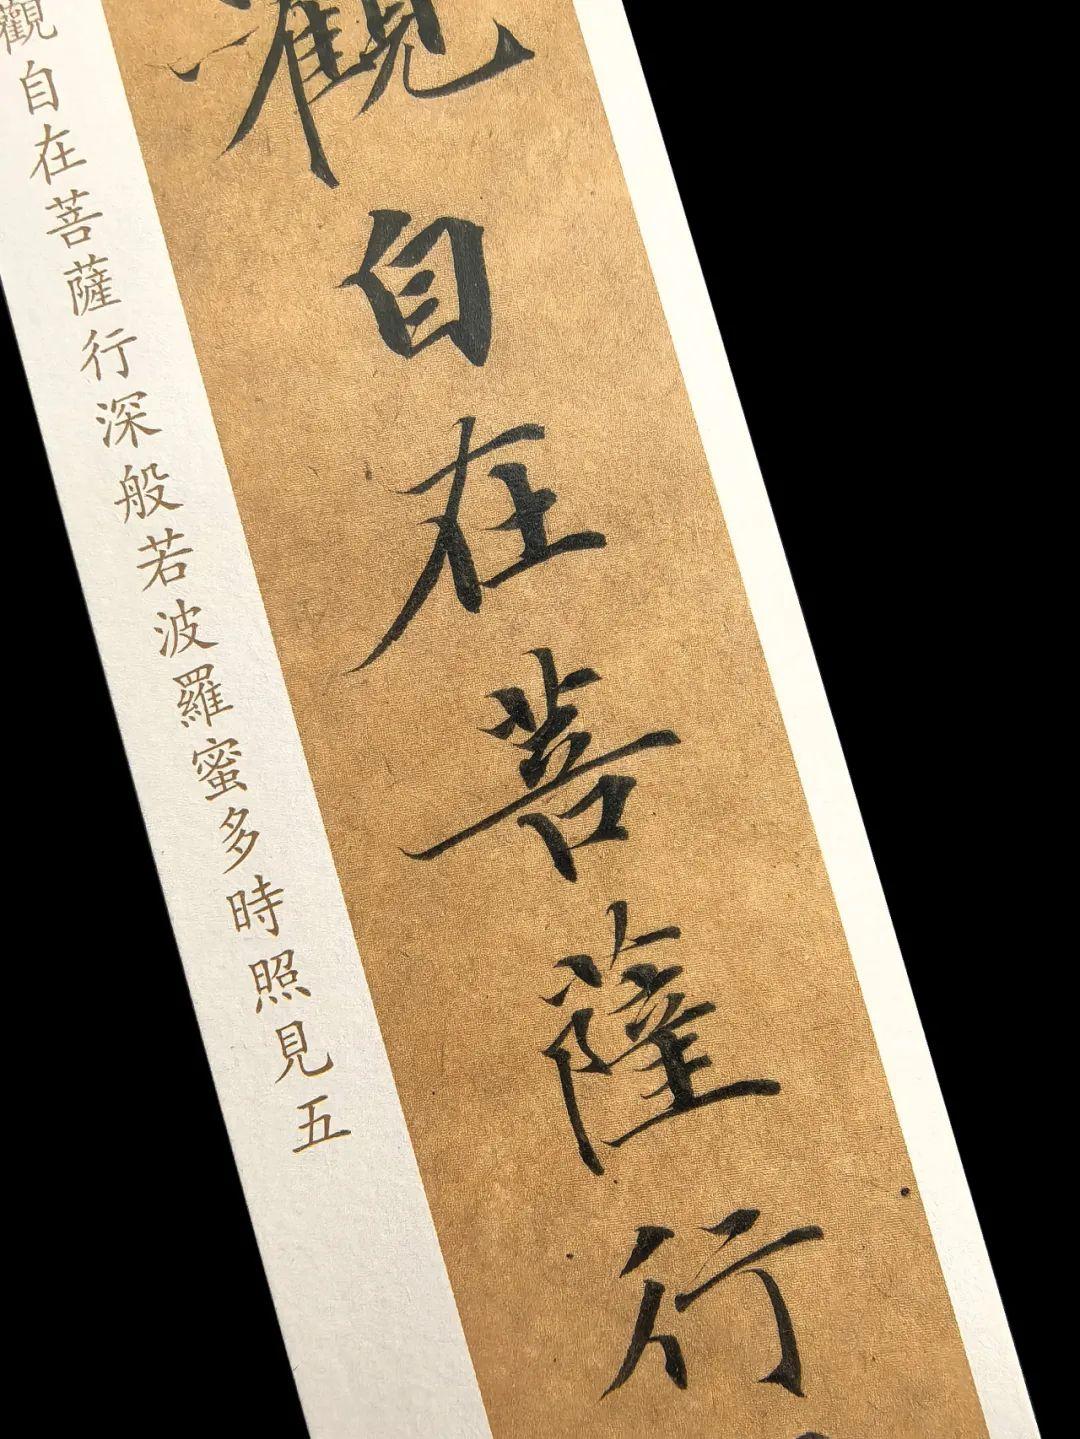 觀自在菩薩行
觀自在菩薩行深般若波羅蜜多時照見五